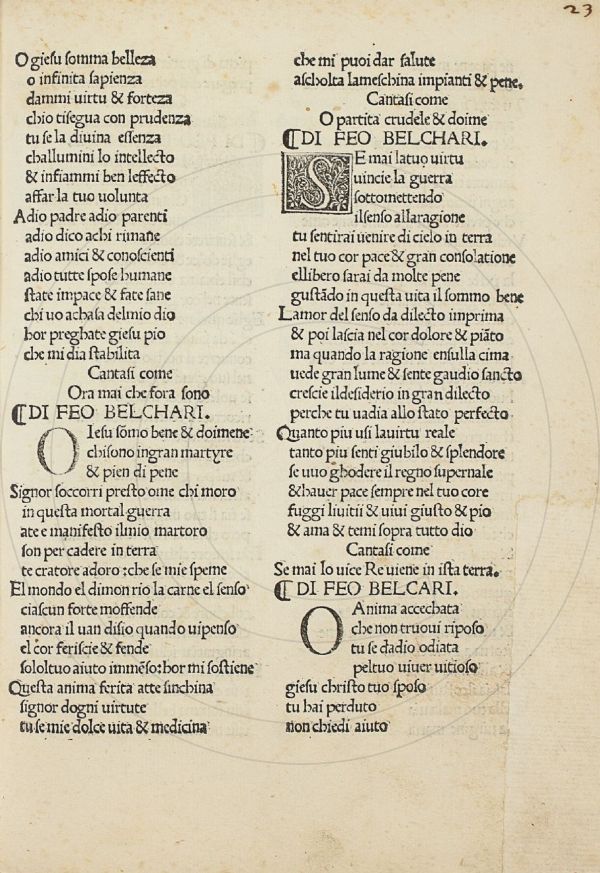 23
O giesu somma belleza
o infinita sapienza
dammi uirtu & forteza
chio tisegua con prudenza
tu se la diuina essenza
challumini lo intellecto
& infiammi ben leffecto
affar la tuo uolunta
Adio padre adio parenti
adio dico achi rimane
adio amici & conoscienti
adio tutte spose humane
state impace & fate sane
chi uo achasa delmio dio
hor preghate giesu pio
che mi dia stabilita
Cantasi come
Ora mai che fora sono
¶DI FEO BELCHARI.
O Iesu sōmo bene & doimene
chisono ingran martyre
& pien di pene
Signor soccorri presto ome chi moro
in questa mortal guerra
ate e manifesto ilmio martoro
son per cadere in terra
te cratore adoro :che se mie speme
El mondo el dimon rio la carne el senso
ciascun forte moffende
ancora il uan disio quando uipenso
el cor feriscie & fende
sololtuo aiuto immēso: hor mi sostiene
Questa anima ferita atte sinchina
signor dogni uirtute
tu se mie dolce uita & medicina
che mi puoi dar salute
ascholta lameschina impianti & pene.
Cantasi come
O partita crudele & doime
¶DI FEO BELCHARI.
SE mai latuo uirtu
uincie la guerra
sottomettendo
ilsenso allaragione
tu sentirai uenire di cielo in terra
nel tuo cor pace & gran consolatione
ellibero sarai da molte pene
gustādo in questa uita il sommo bene
Lamor del senso da dilecto imprima
& poi lascia nel cor dolore & piāto
ma quando la ragione ensulla cima
uede gran lume & sente gaudio sancto
crescie ildesiderio in gran dilecto
perche tu uadia allo stato perfecto
Quanto piu usi lauirtu reale
tanto piu senti giubilo & splendore
se uuo ghodere il regno supernale
& hauer pace sempre nel tuo core
fuggi liuitii & uiui giusto & pio
& ama & temi sopra tutto dio
Cantasi come
Se mai lo uice Re uiene in ista terra.
¶DI FEO BELCARI.
O Anima accechata
che non truoui riposo
tu se dadio odiata
peltuo uiuer uitioso
giesu christo tuo sposo
tu hai perduto
non chiedi aiuto